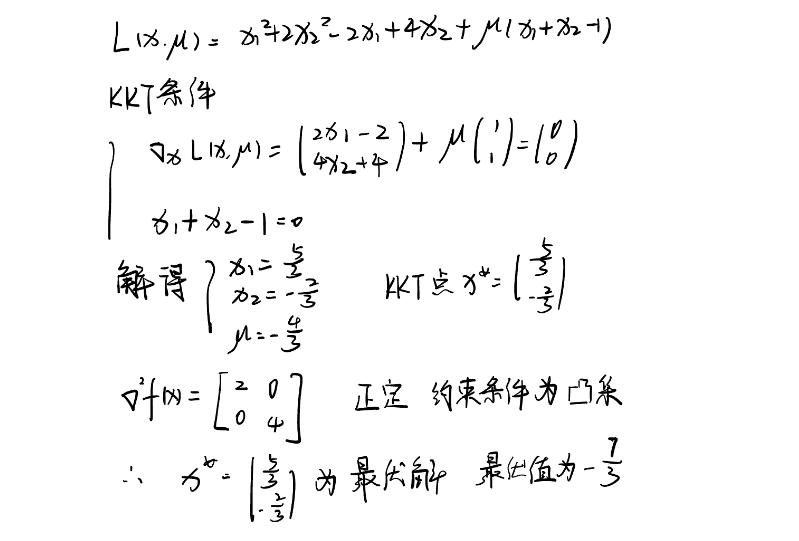 L(x,μ) = x₁²+2x₂²-2x₁+4x₂+μ(x₁+x₂-1)
KKT条件
∇ₓL(x,μ) = (2x₁-2 4x₂+4) + μ(1 1) = (0 0)
x₁+x₂-1=0
解得 { x₁=5/3 KKT点 x*=(5/3 -2/3)
x₂=-2/3
μ=-4/3
∇²f(x)= [2 0 0 4] 正定 约束条件为凸集
∴ x*=(5/3 -2/3) 为最优解 最优值为-7/3